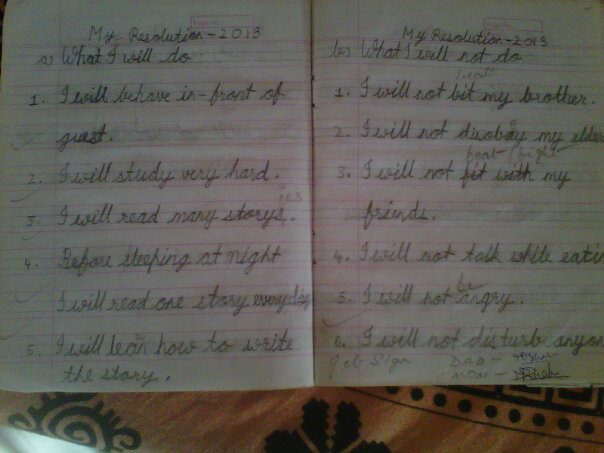 My Resolution - 2013
a) What I will do
1. I will behave in-front of
guest.
2. I will study very hard.
ies
3. I will read many storys.
4. Before sleeping at night
I will read one story everyday
5. I will lean how to write
the story.
My Resolution - 2013
b) What I will not do
beat
1. I will not bit my brother.
2. I will not disobay my elde
fight
3. I will not fit with my
friends.
4. I will not talk while eati
be
5. I will not angry.
6. I will not disturb anyon
get Sign DAD -
MOM -